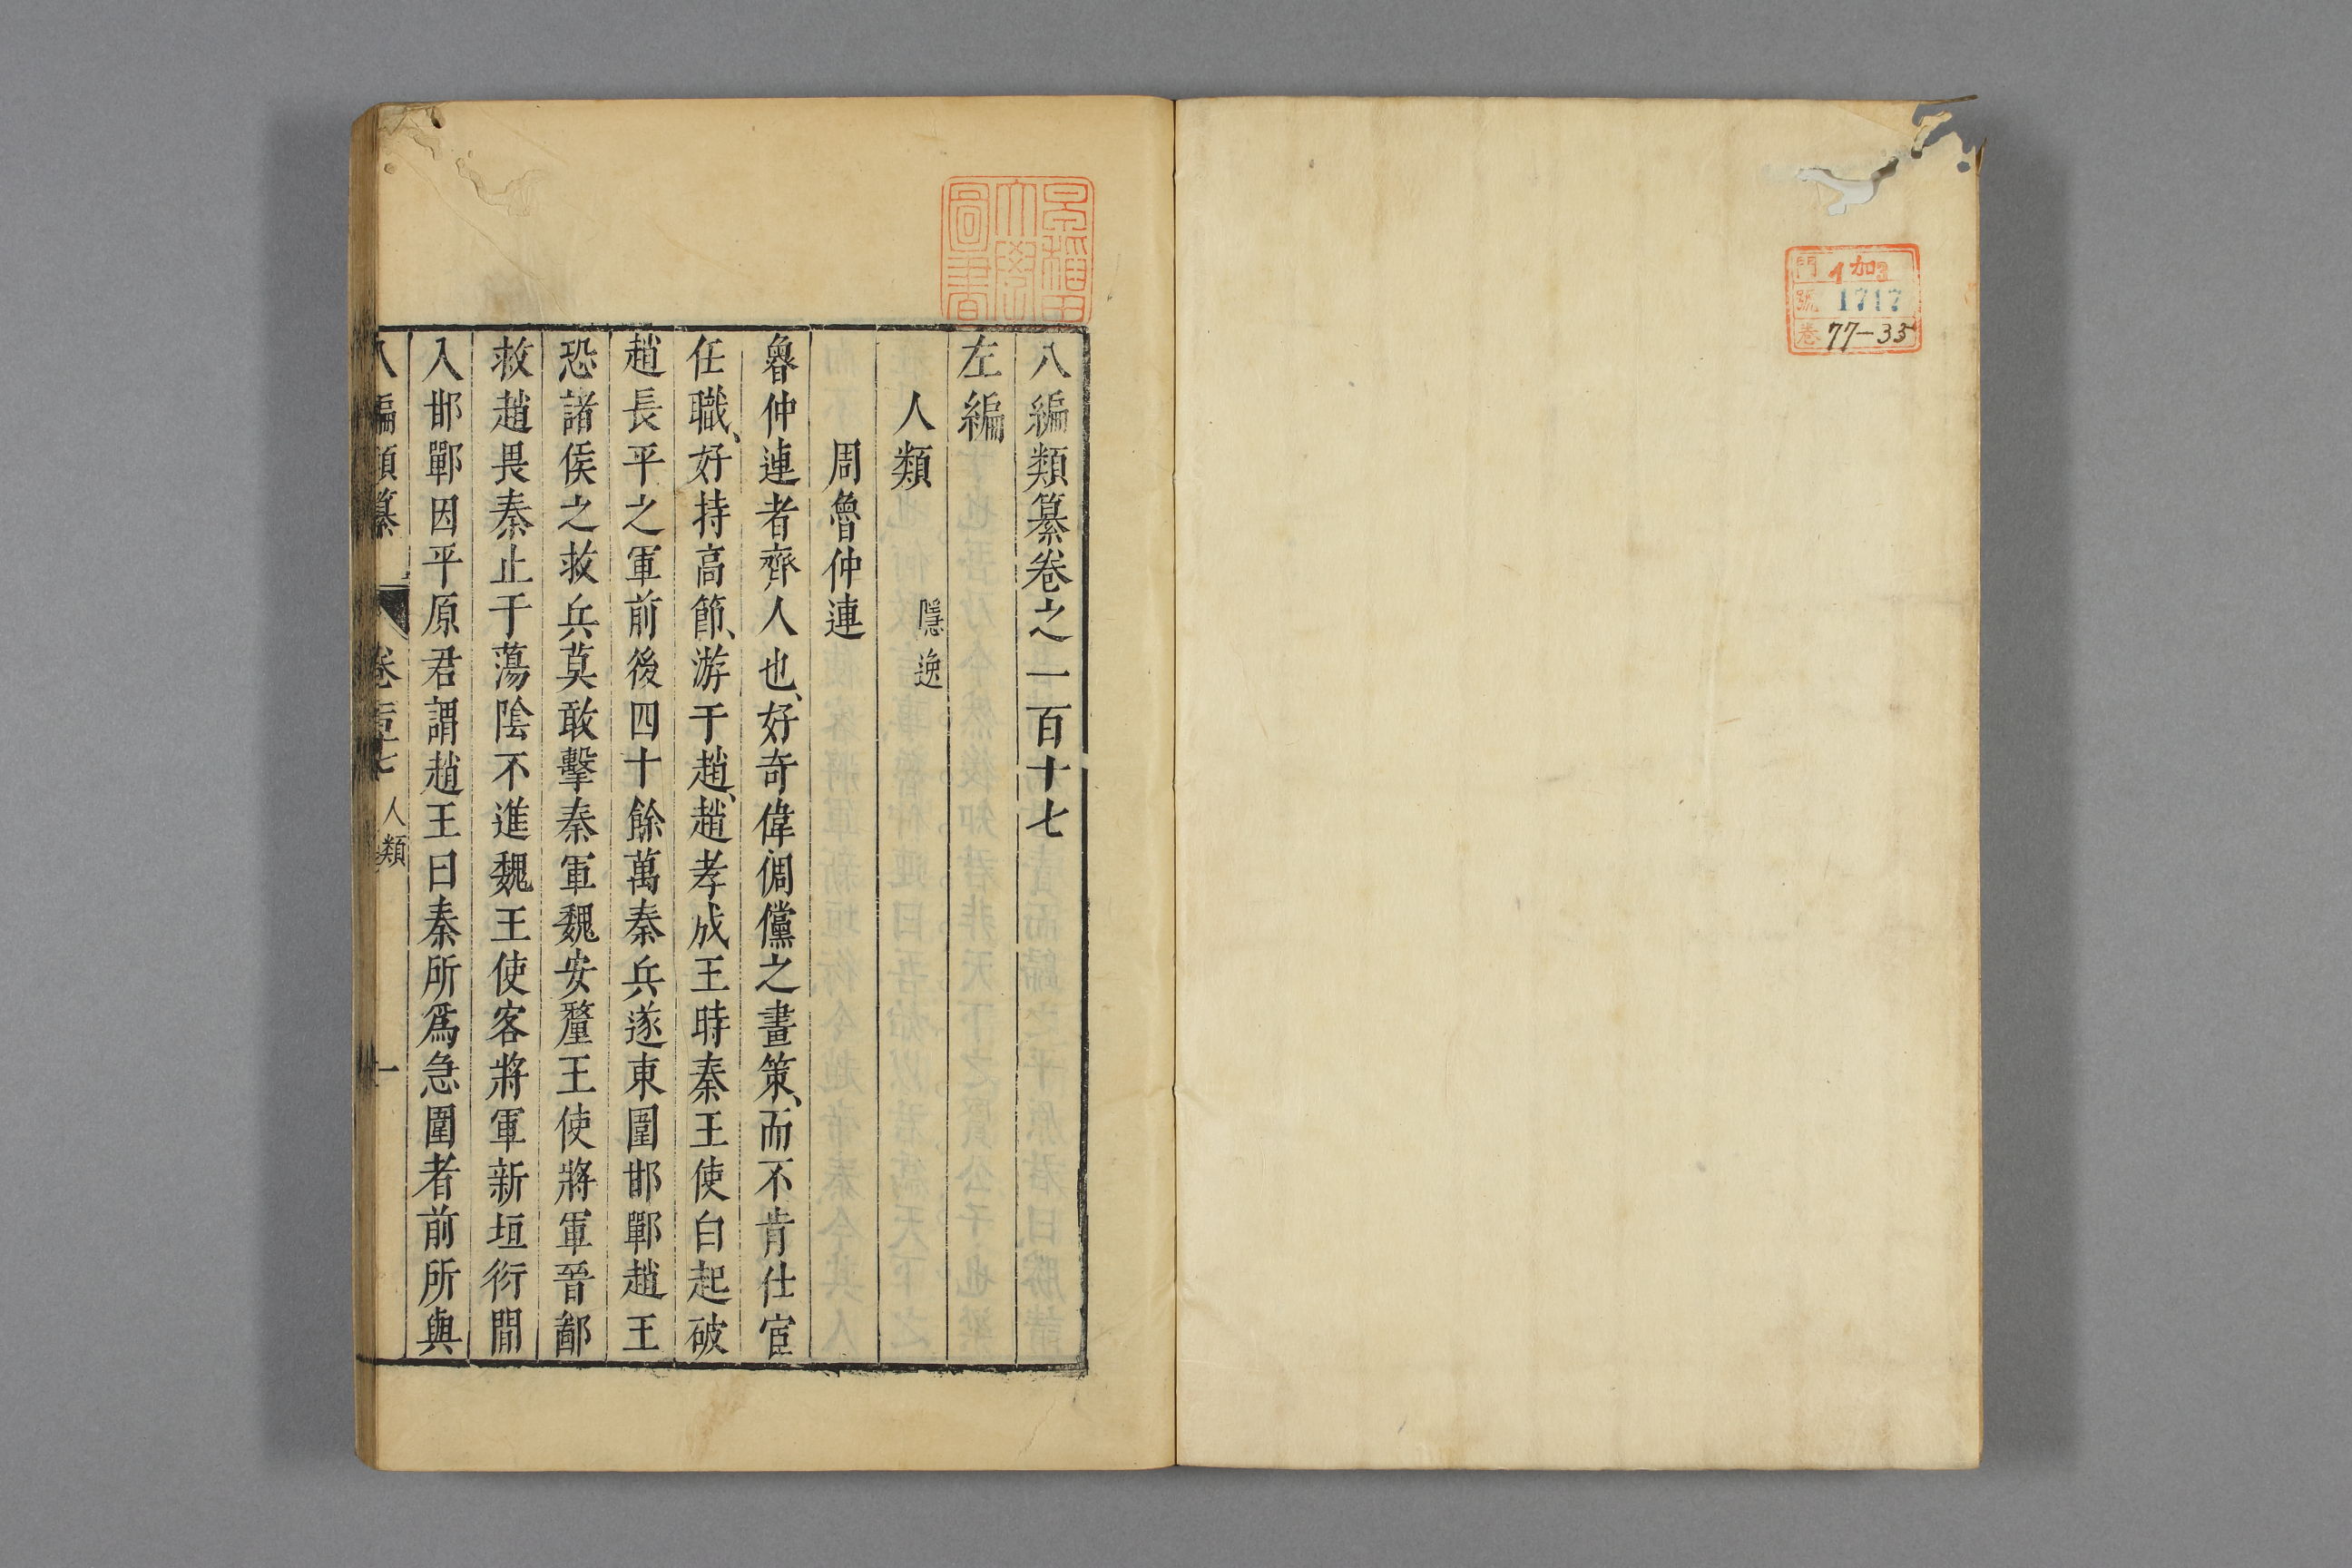 門 イ加3
號 1717
卷 77-35
早稻田大學圖書
八編類纂卷之一百十七
左編
人類 隱逸
周魯仲連
魯仲連者齊人也、好奇偉倜儻之畫策、而不肯仕宦
任職、好持高節、游于趙、趙孝成王時秦王使白起破
趙長平之軍前後四十餘萬秦兵遂東圍邯鄲趙王
恐諸侯之救兵莫敢擊秦軍魏安釐王使將軍晉鄙
救趙畏秦止于蕩陰不進魏王使客將軍新垣衍間
入邯鄲因平原君謂趙王曰秦所爲急圍者前所與
八編類纂 卷百十七 人類 一